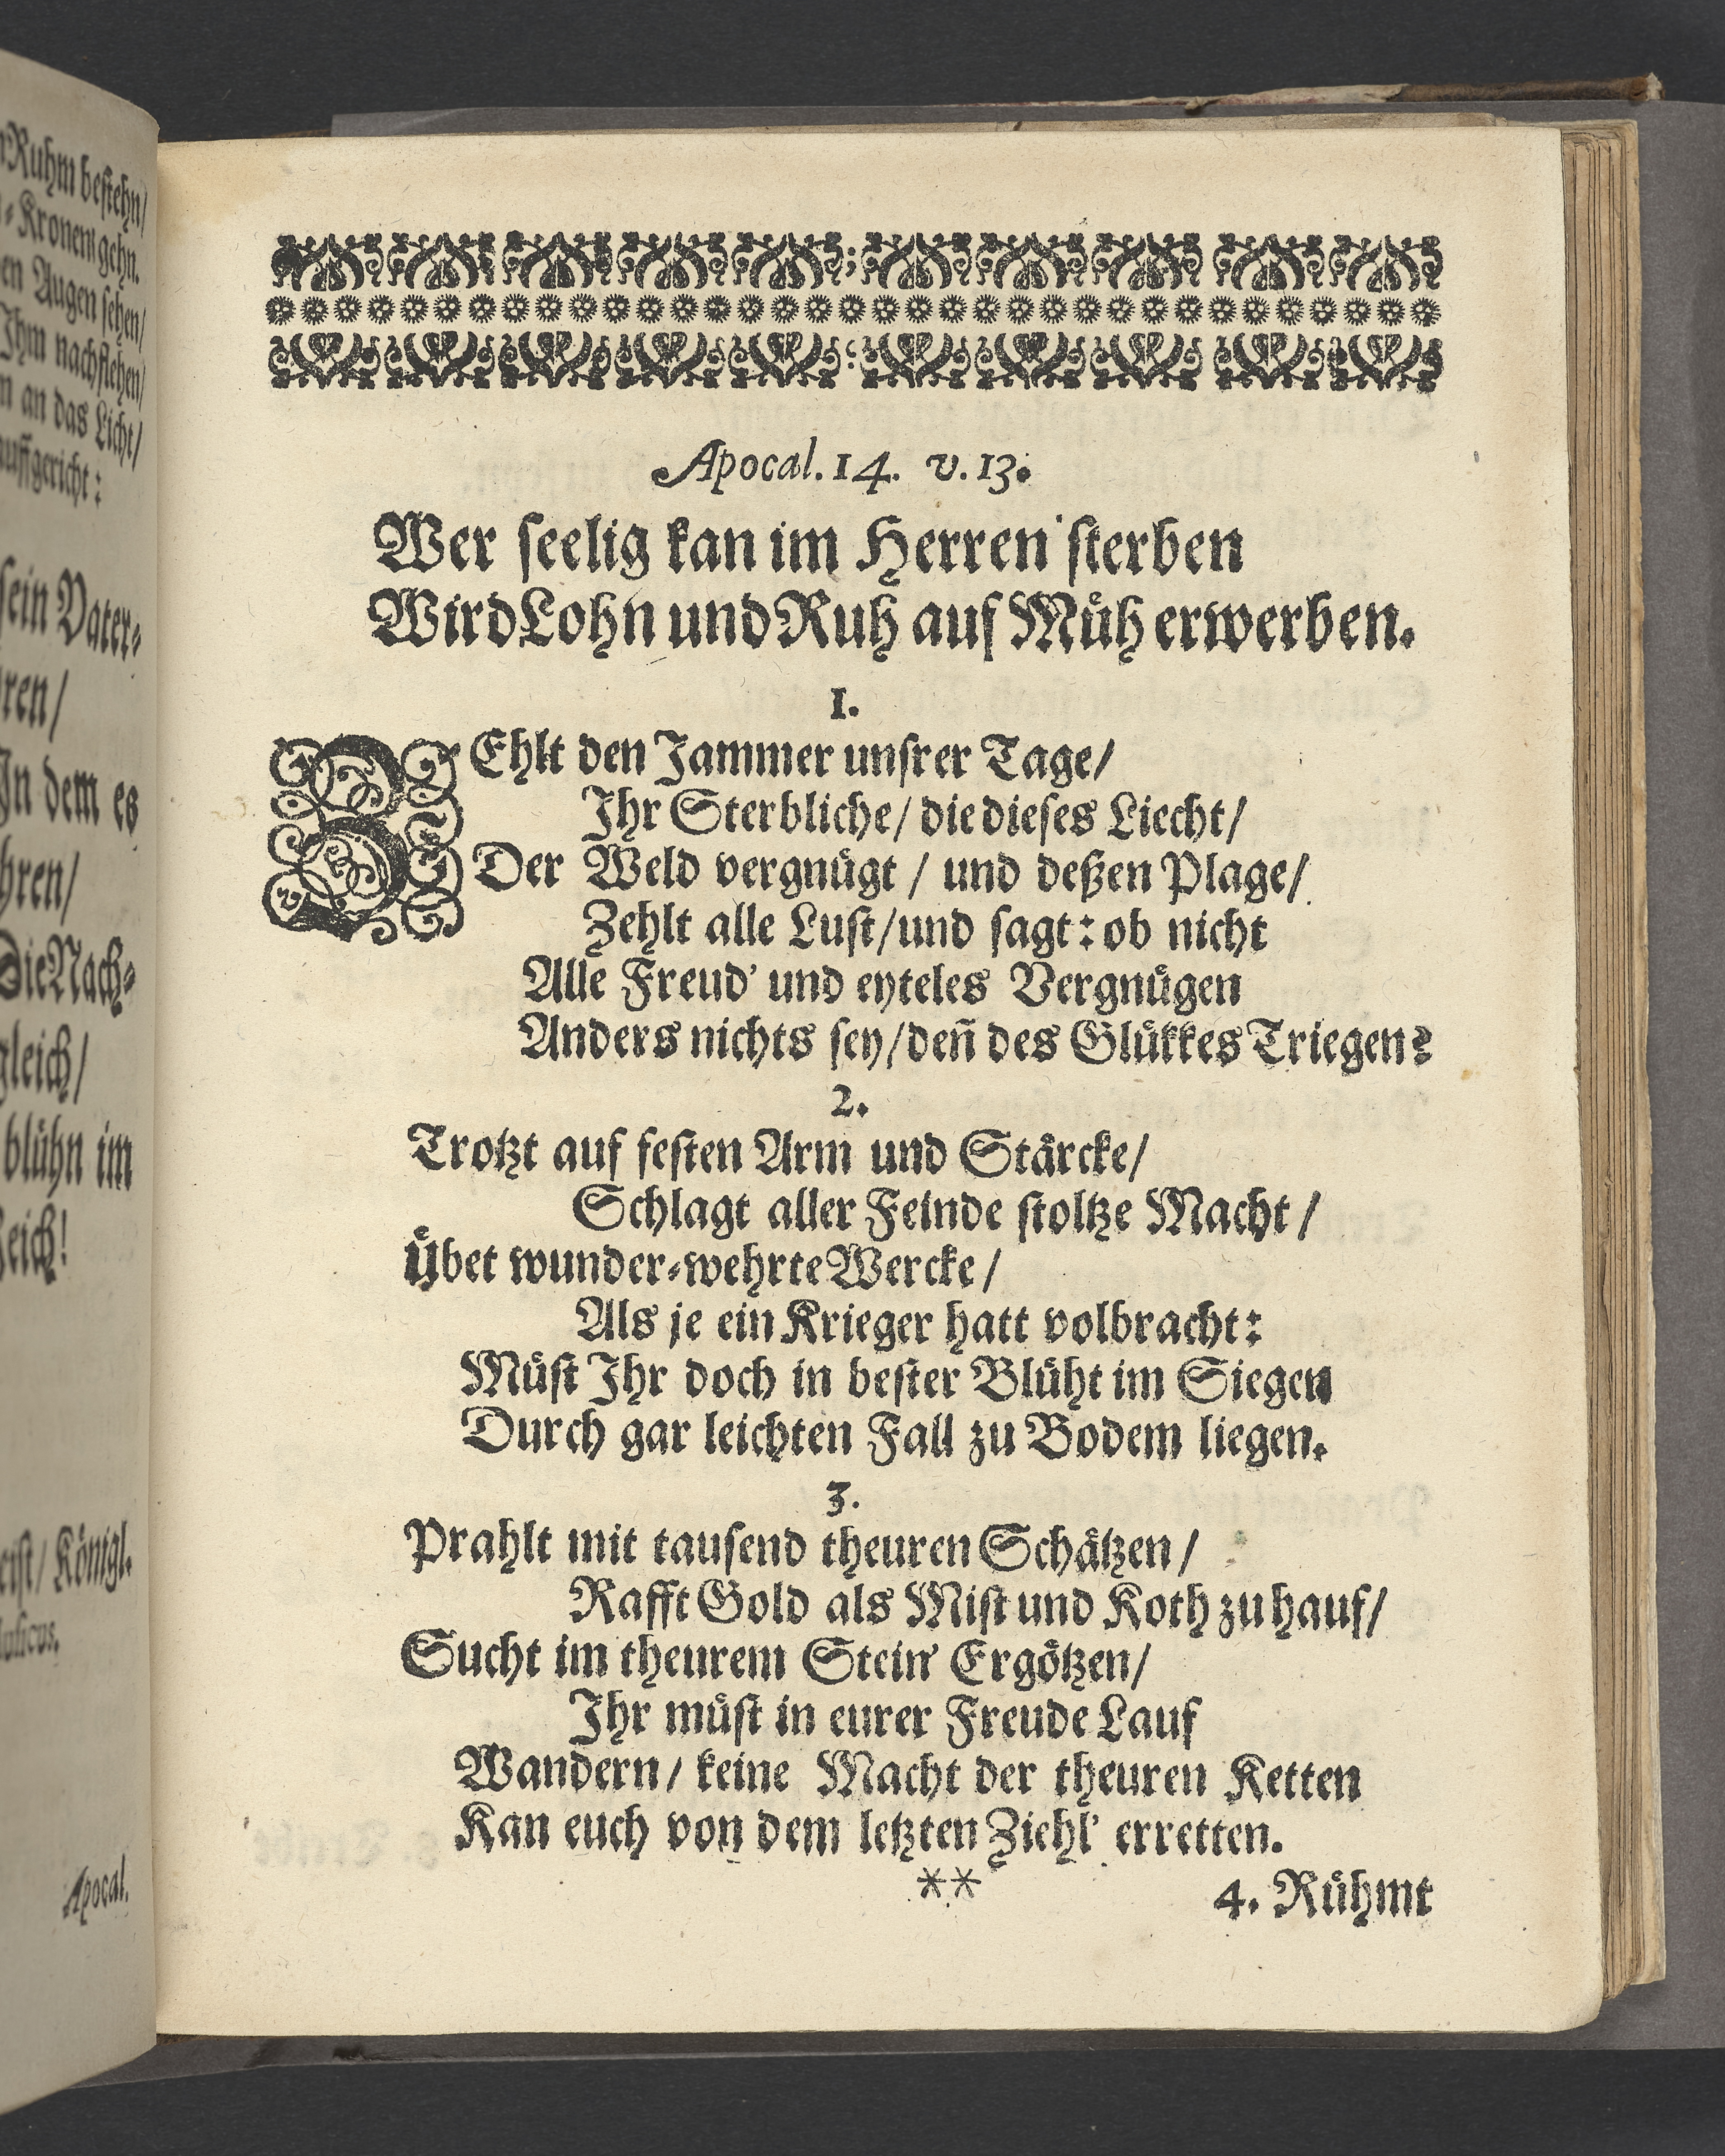 Ruhm bestehn/
Kronen gehn.
en Augen sehen/
Ihm nachflehen/
n an das Licht/
auffgericht:
sein Vater⸗
ren/
In dem es
hren/
Die Nach⸗
gleich/
blühn im
Reich!
Königl.
Apocal.
Apocal. 14. v. 13.
Wer seelig kan im Herren sterben
Wird Lohn und Ruh auf Müh erwerben.
1.
ZEhlt den Jammer unsrer Tage/
Ihr Sterbliche/ die dieses Liecht/
Der Weld vergnügt / und deßen Plage/
Zehlt alle Lust/und sagt: ob nicht
Alle Freud' und eyteles Vergnügen
Anders nichts sey/den̄ des Glükkes Triegen?
2.
Trotzt auf festen Arm und Stärcke/
Schlagt aller Feinde stoltze Macht /
Übet wunder⸗wehrte Wercke /
Als je ein Krieger hatt volbracht:
Müst Ihr doch in bester Blüht im Siegen
Durch gar leichten Fall zu Bodem liegen.
3.
Prahlt mit tausend theuren Schätzen /
Rafft Gold als Mist und Koth zu hauf/
Sucht im theurem Stein' Ergötzen/
Ihr müst in eurer Freude Lauf
Wandern / keine Macht der theuren Ketten
Kan euch von dem letzten Ziehl' erretten.
** 4. Rühmt